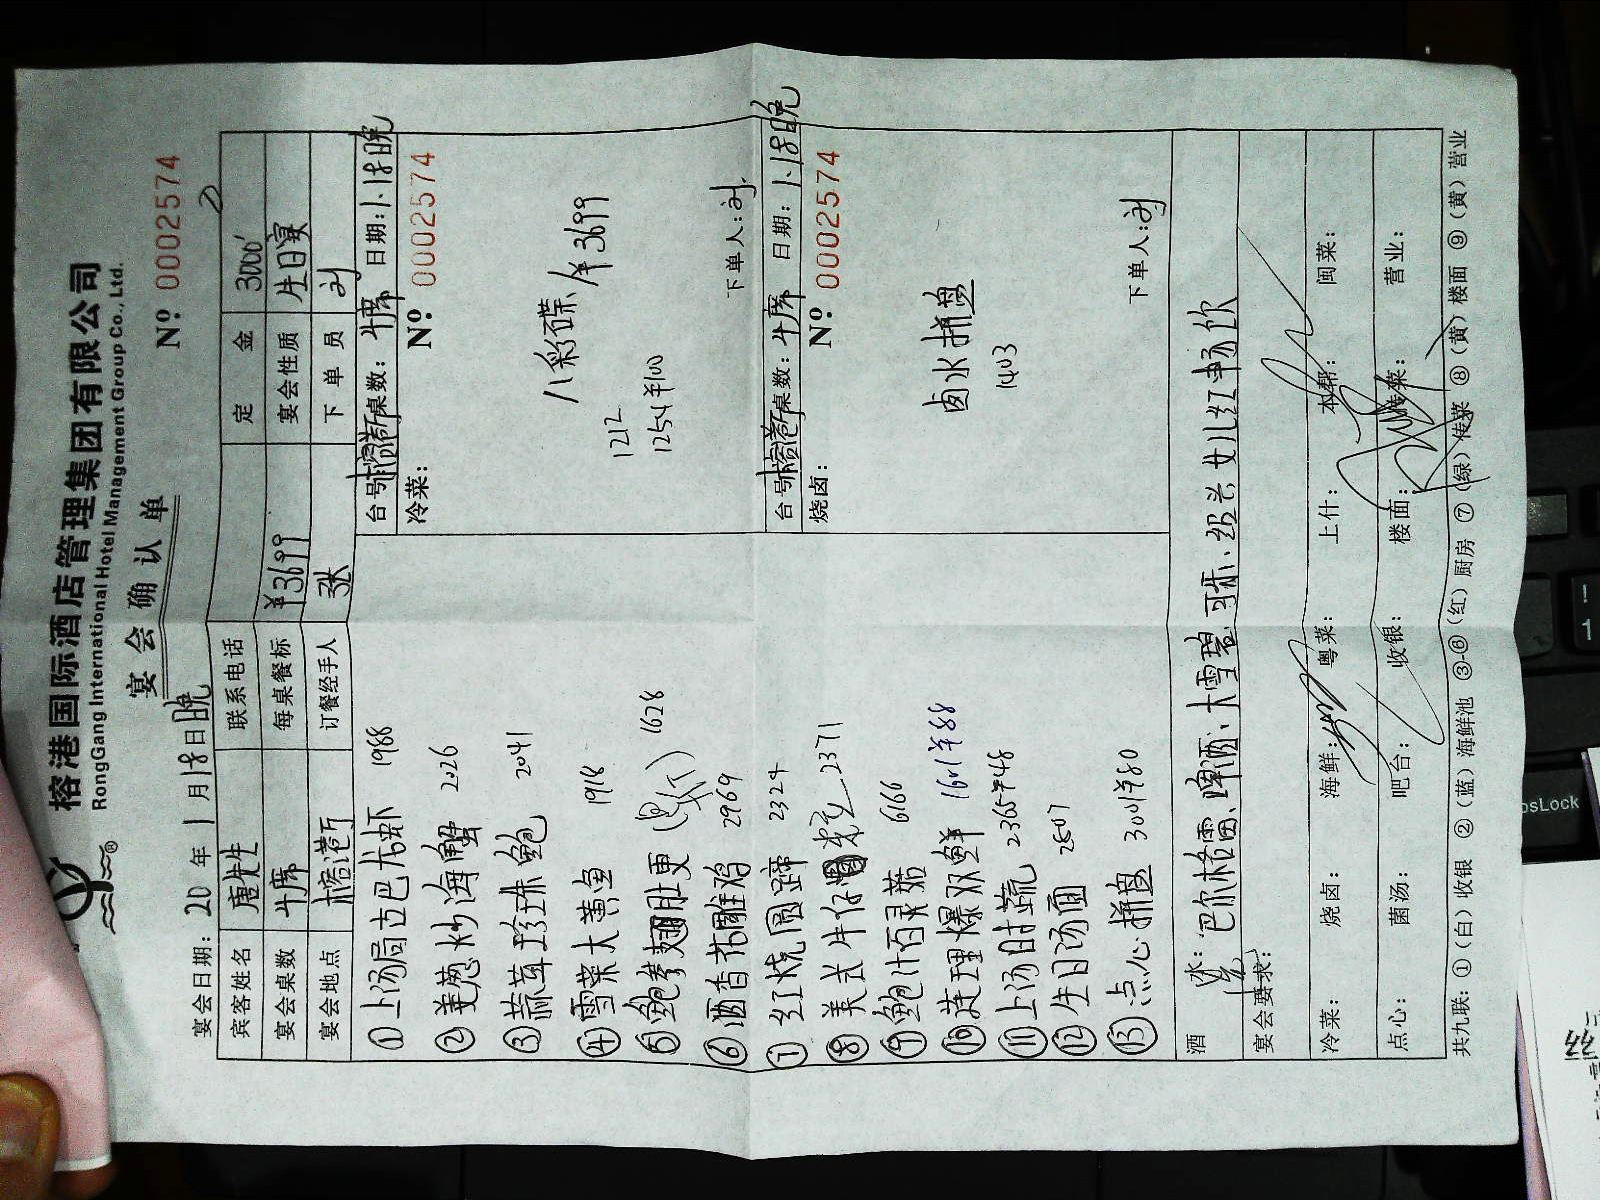 榕港国际酒店管理集团有限公司
RongGang International Hotel Management Group Co., Ltd.
宴会确认单
宴会日期: 20 年 1 月 18 日 晚
№ 0002574
宾客姓名 唐先生 联系电话 定金 3000
宴会桌数 4席 每桌餐标 ¥3699 宴会性质 生日宴
宴会地点 榕港厅 订餐经手人 下单员 刘
① 上汤焗古巴龙虾 1988
② 姜葱炒海蟹 2026
③ 蒜茸珍珠鲍 2041
④ 雪菜大黄鱼 1918
⑤ 1628
⑥ 酒香花雕鸡 2969
⑦ 红烧圆蹄 2324
⑧ 美式牛仔粒 2371
⑨ 鲍汁百灵菇 6666
⑩ 爆双鲜 1601 ¥88
⑪ 上汤时蔬 2365 ¥48
⑫ 生日汤面 2807
⑬ 点心拼盘 3001 ¥80
台号 榕港厅 桌数: 4席 日期: 1.18晚
冷菜: № 0002574
八彩碟 / ¥3699
1212
1254 ¥100
下单人: 刘
台号 榕港厅 桌数: 4席 日期: 1.18晚
烧卤: № 0002574
卤水拼盘
1403
下单人: 刘
酒水: 啤酒、大雪碧、可乐、女儿红畅饮
宴会要求:
冷菜: 烧卤: 海鲜: 粤菜: 上什: 本帮: 闽菜:
点心: 菌汤: 吧台: 收银: 楼面: 传菜: 营业:
共九联: ①(白)收银 ②(蓝)海鲜池 ③-⑥(红)厨房 ⑦(绿)传菜 ⑧(黄)楼面 ⑨(黄)营业